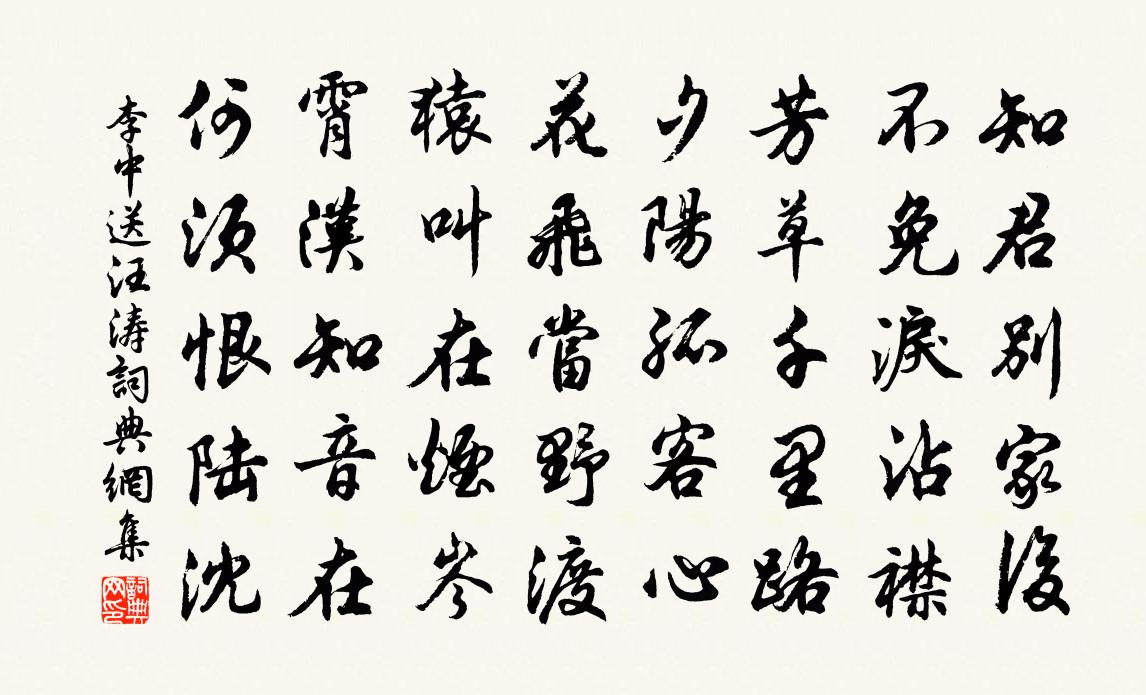 知君別家後
不免淚沾襟
芳草千里路
夕陽孤客心
花飛當野渡
猿叫在煙岑
霄漢知音在
何須恨陸沈
李中送汪濤詞典網集
詞典網印